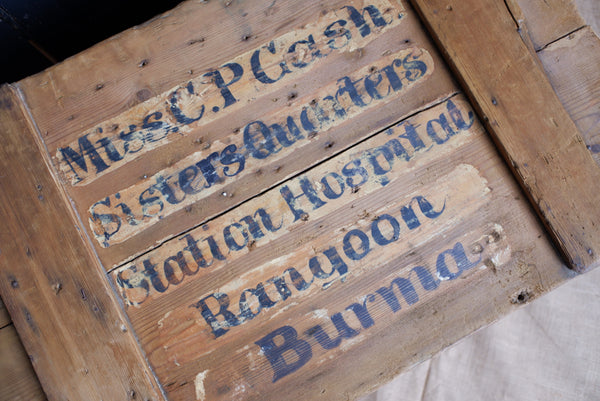 Miss C.P Cash
Sisters Quarters
Station Hospital
Rangoon
Burma